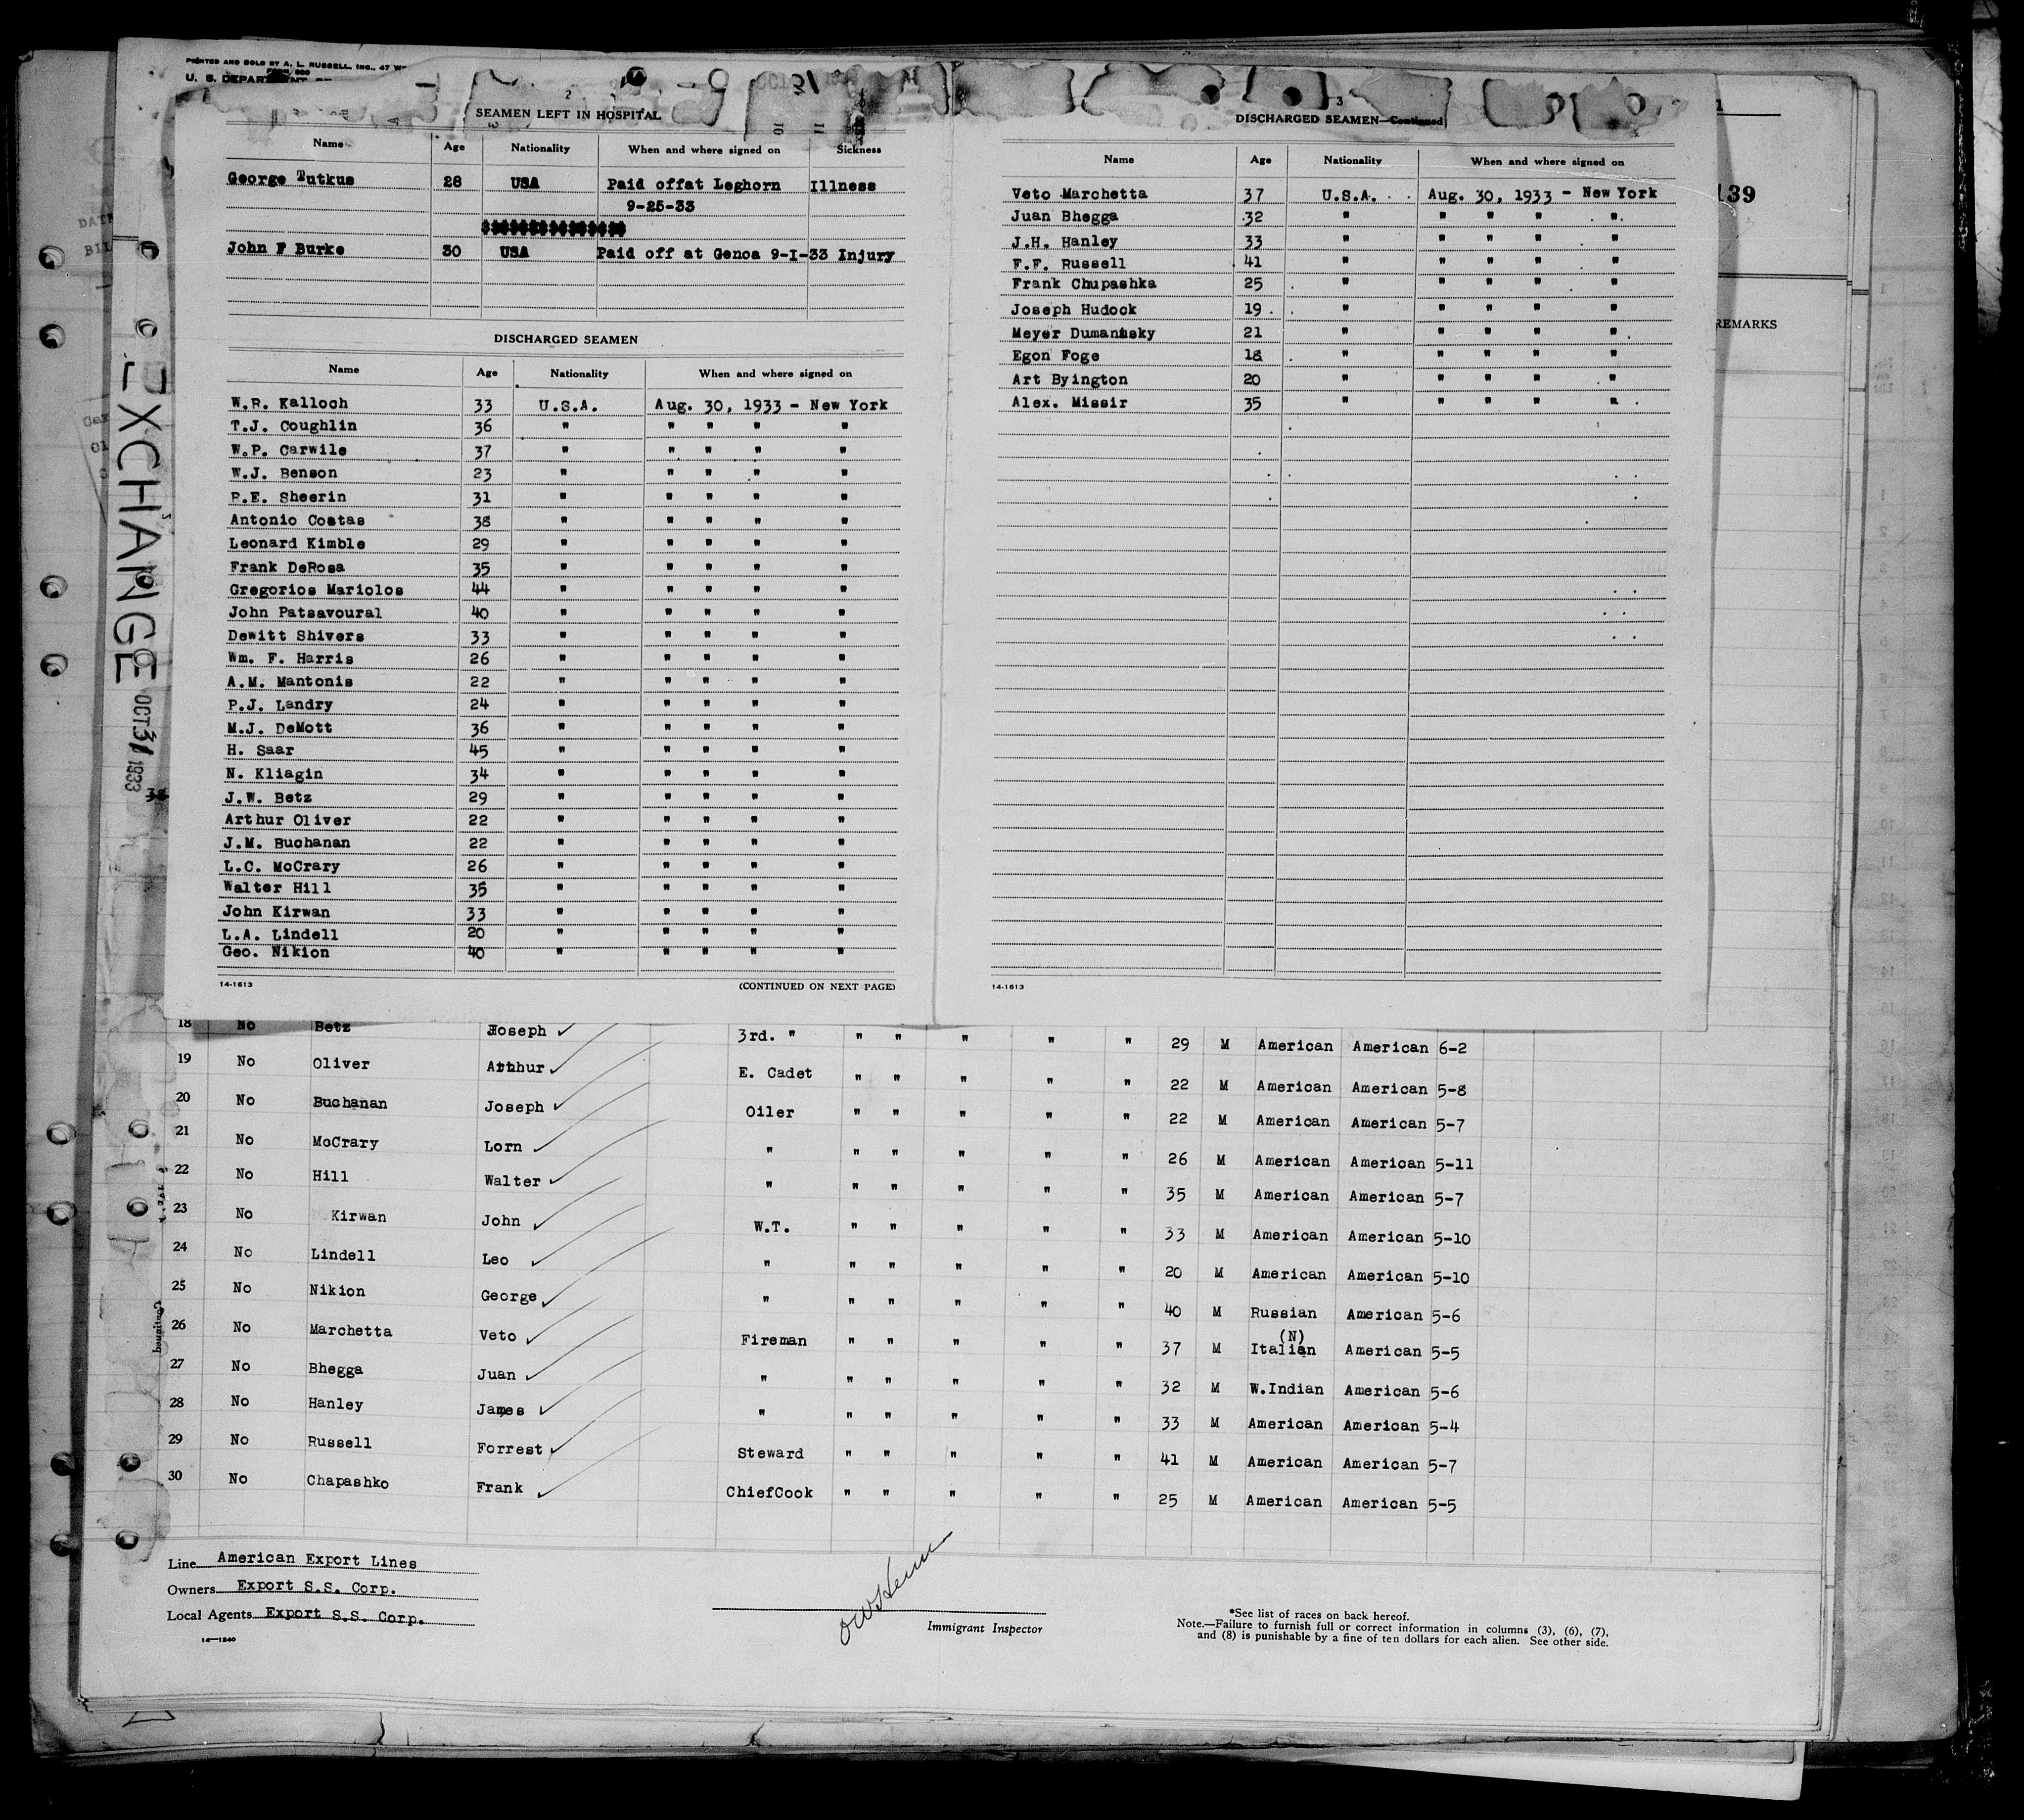 PRINTED AND SOLD BY A. L. RUSSELL, INC., 47
U. S. DEPARTMENT
2
SEAMEN LEFT IN HOSPITAL
Name Age Nationality When and where signed on Sickness
George Tutkus 28 USA Paid offat Leghorn Illness
9-25-33
John F Burke 30 USA Paid off at Genoa 9-I-33 Injury
DISCHARGED SEAMEN
Name Age Nationality When and where signed on
W.R. Kalloch 33 U.S.A. Aug. 30, 1933 - New York
T.J. Coughlin 36 " " " " "
W.P. Carwile 37 " " " " "
W.J. Benson 23 " " " " "
P.E. Sheerin 31 " " " " "
Antonio Costas 38 " " " " "
Leonard Kimble 29 " " " " "
Frank DeRosa 35 " " " " "
Gregorios Mariolos 44 " " " " "
John Patsavoural 40 " " " " "
Dewitt Shivers 33 " " " " "
Wm. F. Harris 26 " " " " "
A.M. Mantonis 22 " " " " "
P.J. Landry 24 " " " " "
M.J. DeMott 36 " " " " "
H. Saar 45 " " " " "
N. Kliagin 34 " " " " "
J.W. Betz 29 " " " " "
Arthur Oliver 22 " " " " "
J.M. Buchanan 22 " " " " "
L.C. McCrary 26 " " " " "
Walter Hill 35 " " " " "
John Kirwan 33 " " " " "
L.A. Lindell 20 " " " " "
Geo. Nikion 40 " " " " "
14-1613 (CONTINUED ON NEXT PAGE)
3
DISCHARGED SEAMEN—Continued
Name Age Nationality When and where signed on
Veto Marchetta 37 U.S.A. Aug. 30, 1933 - New York
Juan Bhegga 32 " " " " "
J.H. Hanley 33 " " " " "
F.F. Russell 41 " " " " "
Frank Chupashka 25 " " " " "
Joseph Hudock 19 " " " " "
Meyer Dumansky 21 " " " " "
Egon Foge 18 " " " " "
Art Byington 20 " " " " "
Alex. Missir 35 " " " " "
14-1613
139
REMARKS
EXCHANGE
OCT 31 1933
18 No Betz Joseph 3rd. " " " " " " 29 M American American 6-2
19 No Oliver Arthur E. Cadet " " " " " 22 M American American 5-8
20 No Buchanan Joseph Oiler " " " " " 22 M American American 5-7
21 No McCrary Lorn " " " " " " 26 M American American 5-11
22 No Hill Walter " " " " " " 35 M American American 5-7
23 No Kirwan John W.T. " " " " " 33 M American American 5-10
24 No Lindell Leo " " " " " " 20 M American American 5-10
25 No Nikion George " " " " " " 40 M Russian American 5-6
(N)
26 No Marchetta Veto Fireman " " " " " 37 M Italian American 5-5
27 No Bhegga Juan " " " " " " 32 M W.Indian American 5-6
28 No Hanley James " " " " " " 33 M American American 5-4
29 No Russell Forrest Steward " " " " " 41 M American American 5-7
30 No Chapashko Frank ChiefCook " " " " " 25 M American American 5-5
Continued
Line American Export Lines
Owners Export S.S. Corp.
Local Agents Export S.S. Corp.
14—1240
Immigrant Inspector
*See list of races on back hereof.
Note.—Failure to furnish full or correct information in columns (3), (6), (7),
and (8) is punishable by a fine of ten dollars for each alien. See other side.